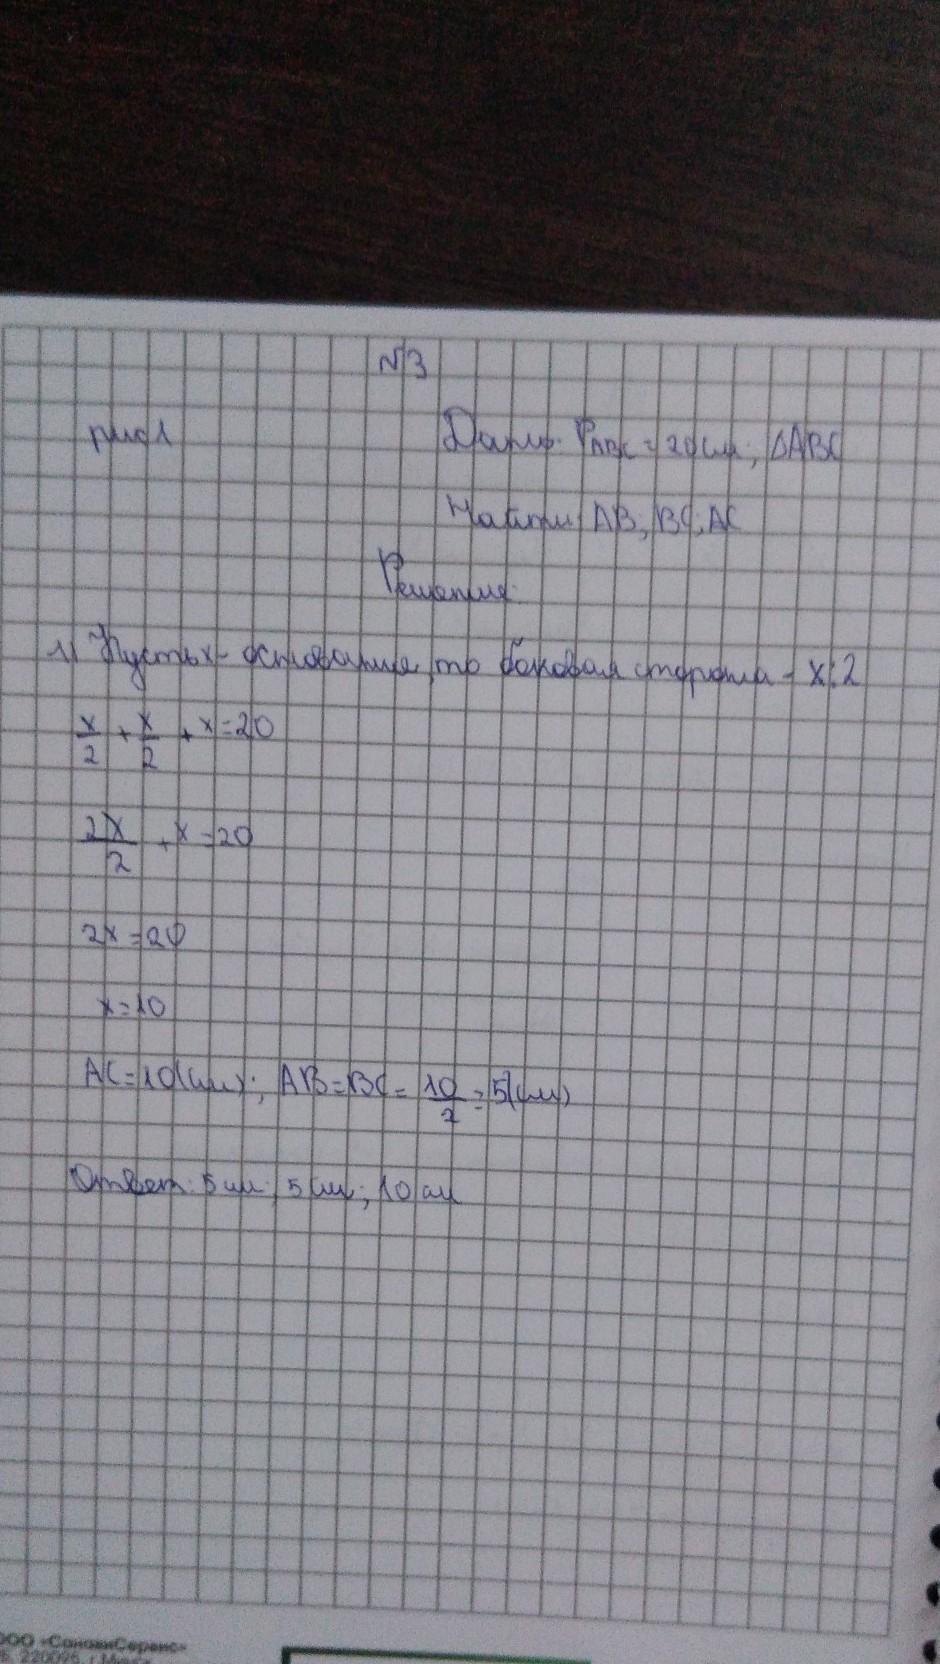 N3
рис1
Дано: PABC = 20 см; ΔABC
Найти: AB; BC; AC
Решение:
1) Пусть x - основание, то боковая сторона - x:2
x/2 + x/2 + x = 20
2x/2 + x = 20
2x = 20
x = 10
AC = 10(см); AB = BC = 10/2 = 5(см)
Ответ: 5 см; 5 см; 10 см
ООО «СановиСервис»
220095, г.Минск